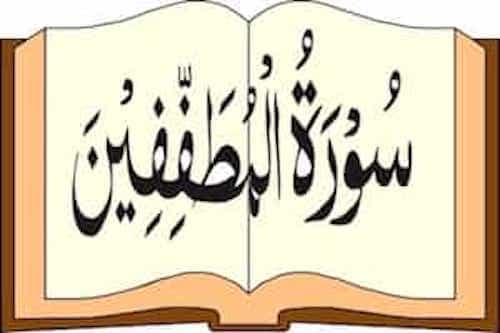 سُوْرَةُ الْمُطَفِّفِيْنَ